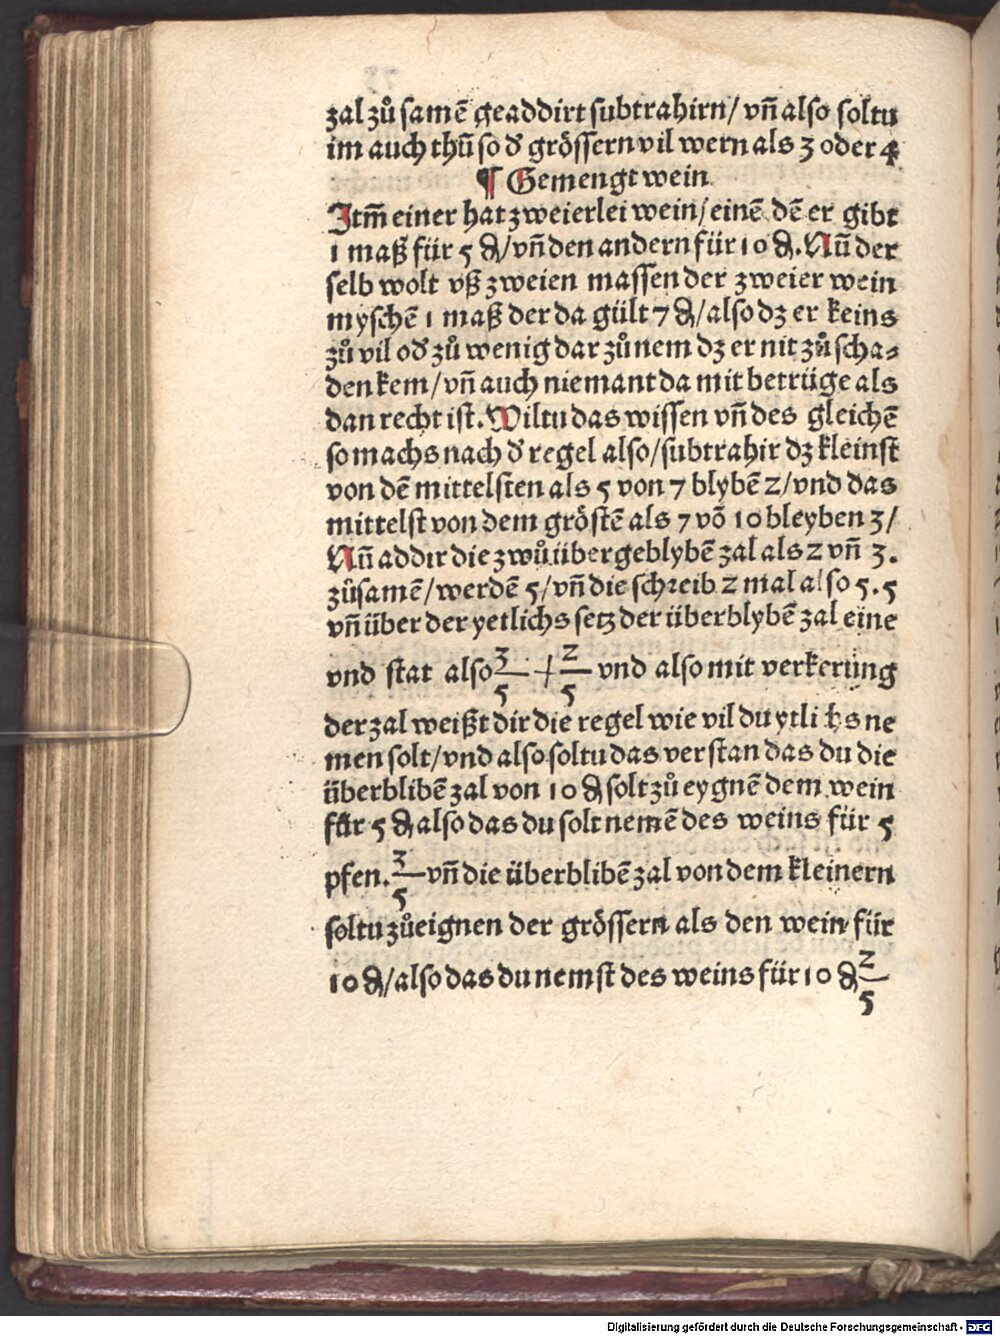 zal zů samē geaddirt subtrahirn/ vñ also soltu
im auch thū so d̕ grössern vil wern als 3 oder 4
¶ Gemengt wein
Itm̄ einer hat zweierlei wein/ einē dē er gibt
1 maß für 5 ₰/ vñ den andern für 10 ₰. Nū der
selb wolt vß zweien massen der zweier wein
myschē 1 maß der da gült 7 ₰/ also dz er keins
zů vil od̕ zů wenig dar zů nem dz er nit zů scha⸗
den kem/ vñ auch niemant da mit betrüge als
dan recht ist. Wiltu das wissen vñ des gleichē
so machs nach d̕ regel also/ subtrahir dz kleinst
von dē mittelsten als 5 von 7 blybē 2/ vnd das
mittelst von dem gröstē als 7 vō 10 bleyben 3/
Nū addir die zwů übergeblybē zal als 2 vñ 3.
zůsamē/ werdē 5/ vñ die schreib 2 mal also 5. 5
vñ über der yetlichs setz der überblybē zal eine
vnd stat also 3/5 + 2/5 vnd also mit verkerung
der zal weißt dir die regel wie vil du ytlichs ne
men solt/ vnd also soltu das verstan das du die
überblibē zal von 10 ₰ solt zů eygnē dem wein
für 5 ₰ also das du solt nemē des weins für 5
pfen. 3/5 vñ die überblibē zal von dem kleinern
soltu zůeignen der grössern als den wein für
10 ₰/ also das du nemst des weins für 10 ₰ 2/5
Digitalisierung gefördert durch die Deutsche Forschungsgemeinschaft - DFG